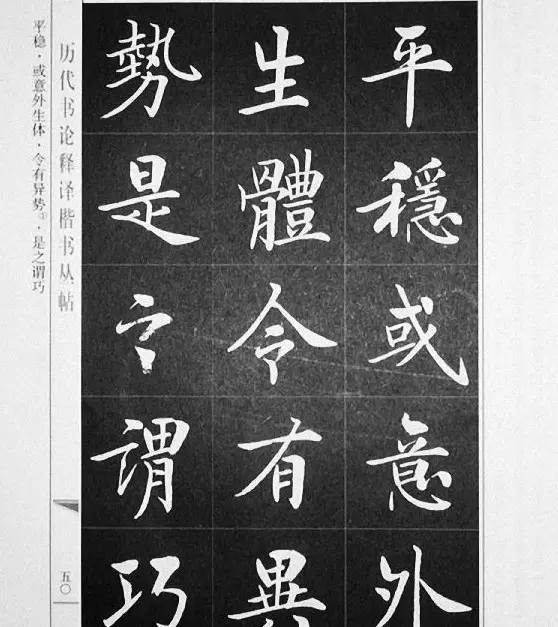 平穩或意外
生體令有異
勢是之謂巧
历代书论释译楷书丛帖
五〇
平稳·或意外生体·令有异势①·是之谓巧